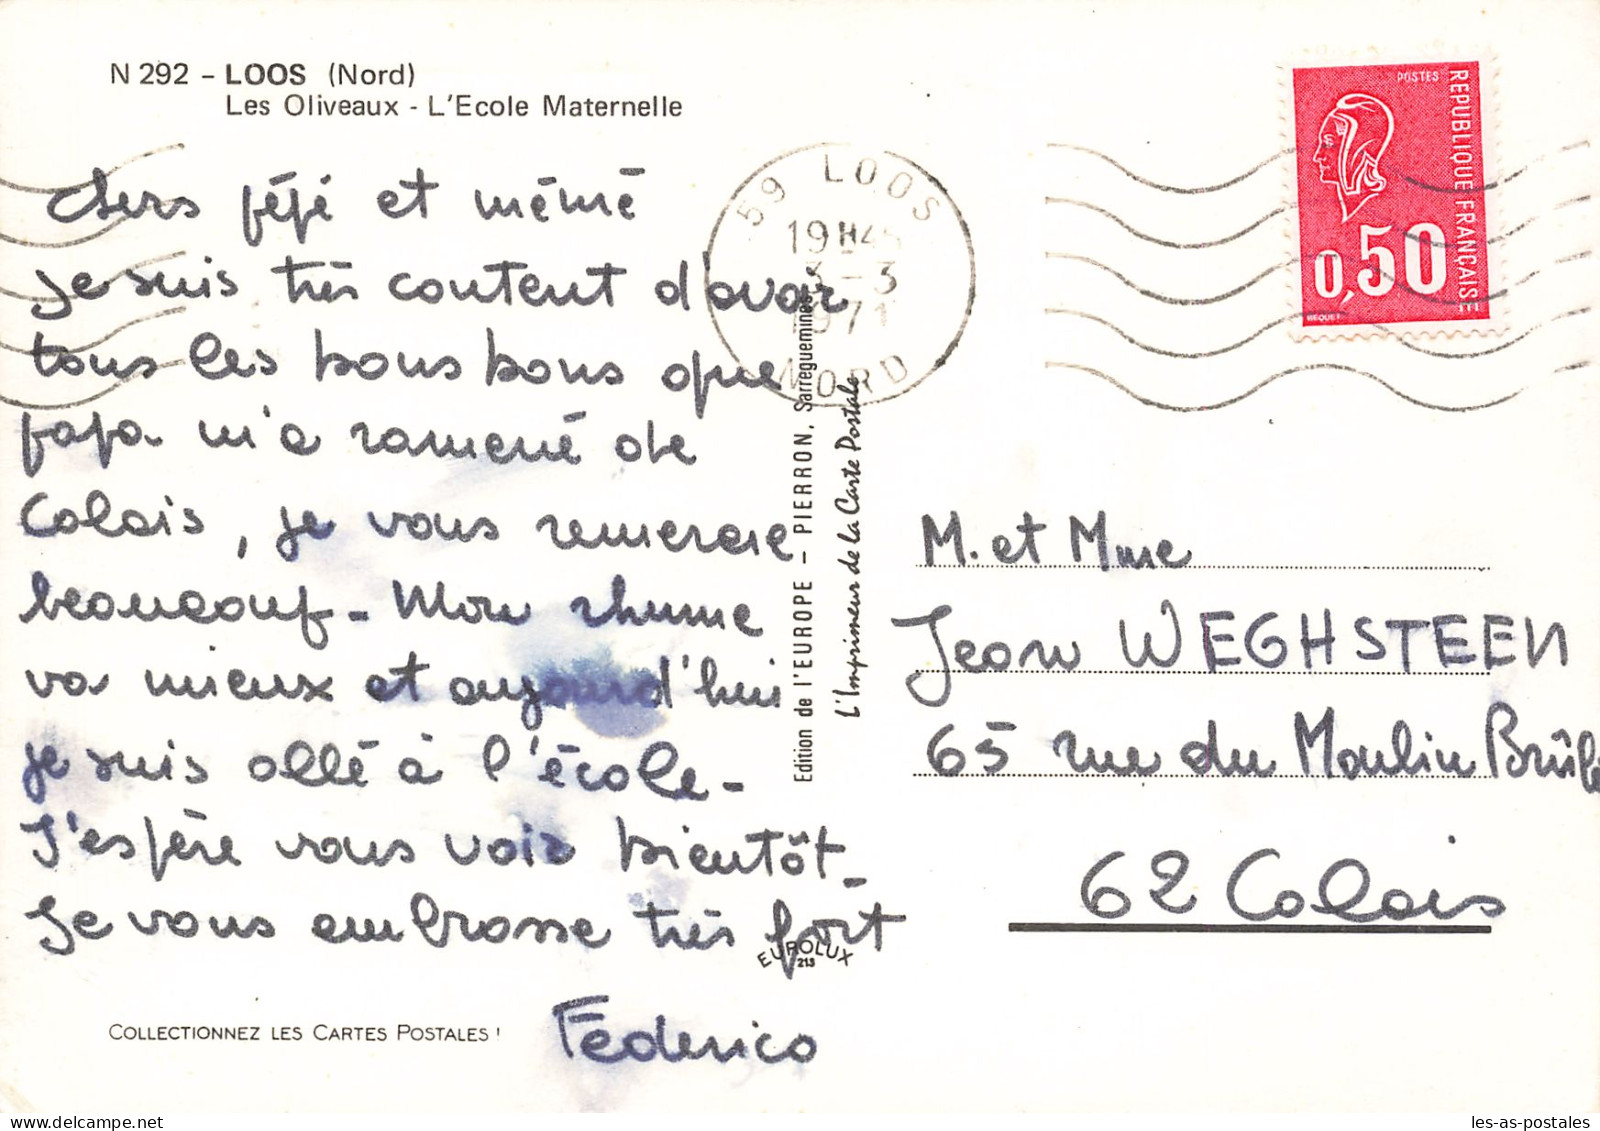 N 292 - LOOS (Nord)
Les Oliveaux - L'Ecole Maternelle
Chers pépé et mémé
je suis très content d'avoir
tous les bonsbons que
papa m'a ramené de
Calais, je vous remercie
beaucoup - Mon rhume
va mieux et aujourd'hui
je suis allé à l'école -
J'espère vous voir bientôt -
Je vous embrasse très fort
Federico
COLLECTIONNEZ LES CARTES POSTALES !
59 LOOS
19H45
3-3
1971
NORD
Edition de l'EUROPE - PIERRON, Sarreguemines
L'Imprimeur de la Carte Postale
EUROLUX
213
POSTES
REPUBLIQUE FRANÇAISE
0,50
BEQUET
M. et Mme
Jean WEGHSTEEN
65 rue du Moulin Brûlé
62 Calais
les-as-postales